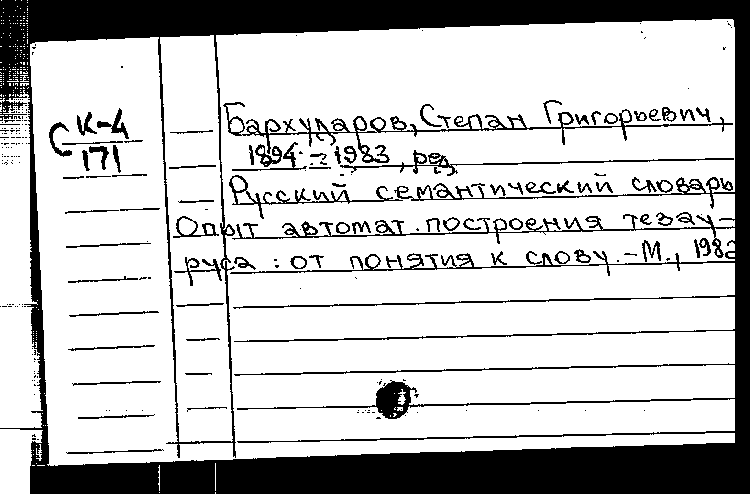 С К-4
171
Бархударов, Степан Григорьевич,
1894 - 1983, ред.
Русский семантический словарь
Опыт автомат. построения тезау-
руса : от понятия к слову. - М., 1982